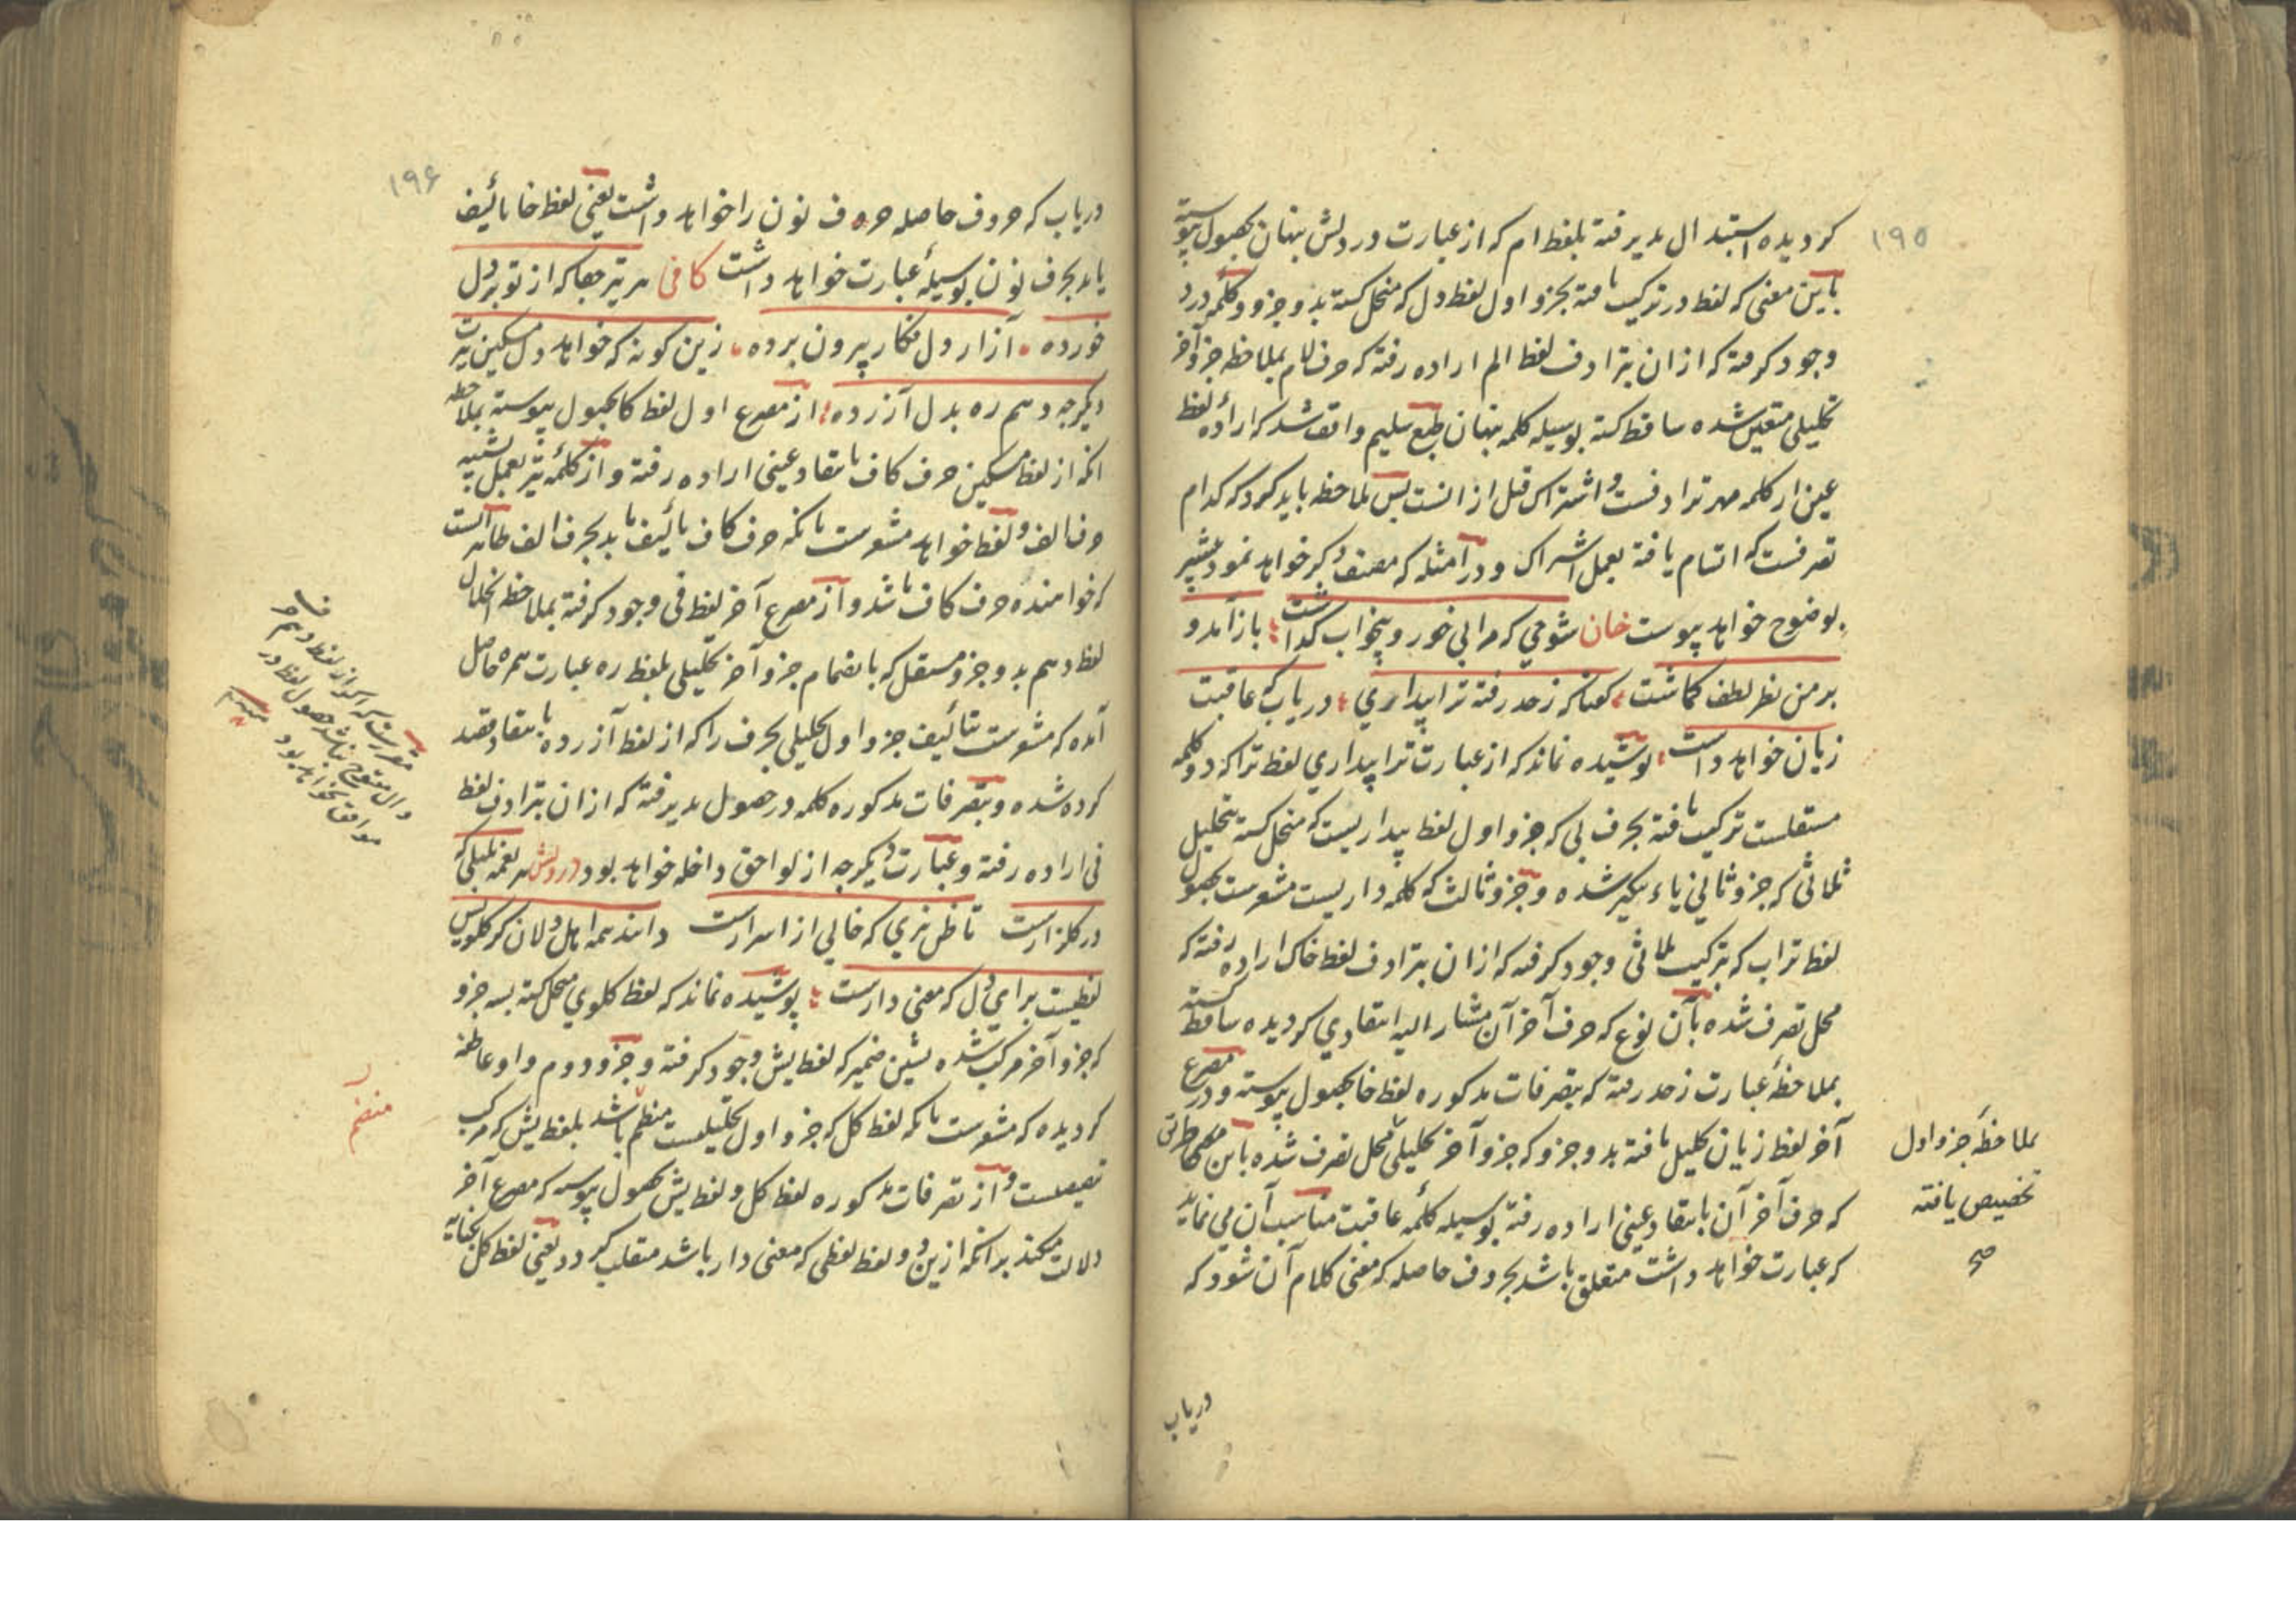 ١٩٥
کردیده استبدال پذیرفته بلفظ ام که از عبارت در دلش پنهان بحصول پیوسته
باین معنی که لفظ در ترکیب یافته بجزو اول لفظ دل که منحل کشته بدو جزو و کلمه درد
وجود کرفته که از ان بترادف لفظ الم اراده رفته که حرف لام بملاحظه جزو آخر
تحلیلی متعین شده ساقط کشته بوسیله کلمه پنهان طبع سلیم واقف شد که اراده لفظ
عین از کلمه مهر ترادفست و اشتراک قبل ازانست پس ملاحظه باید کرد که کدام
تصرفست که اتسام یافته بعمل اشتراک و در امثله که مصنف ذکر خواهد نمود بیشتر
بوضوح خواهد پیوست خان شوخی که مرا بی خور و بیخواب کداشت بازآمد و
بر من نظر لطف کماشت کفتا که ز حد رفته ترا پیداری دریاب که عاقبت
زیان خواهد داشت پوشیده نماند که از عبارت ترا پیداری لفظ ترا که دو کلمه
مستقلست ترکیب یافته بحرف بی که جزو اول لفظ پیداریست که منحل کشته بتحلیل
ثلاثی که جزو ثانی یاء تنکیر شده و جزو ثالث که کلمه داریست مشعرست بحصول
لفظ تراب که بترکیب ثلاثی وجود کرفته که از ان بترادف لفظ خاک اراده رفته که
محل تصرف شده بآن نوع که حرف آخر آن مشار الیه انتقادی کردیده ساقط کشته
بملاحظه عبارت ز حد رفته که بتصرفات مذکوره لفظ خا بحصول پیوسته و در مصرع
آخر لفظ زیان تحلیل یافته بدو جزو که جزو آخر تحلیلی محل تصرف شده باین طریق
که حرف آخر آن بانتقاد عینی اراده رفته بوسیله کلمه عاقبت مناسب آن می نماید
که عبارت خواهد داشت متعلق باشد بحروف حاصله که معنی کلام آن شود که
بملاحظه جزو اول
تخصیص یافته
صح
دریاب
١٩۶
دریاب که حروف حاصله حرف نون را خواهد داشت یعنی لفظ خا تألیف
یابد بحرف نون بوسیله عبارت خواهد داشت کافی هر تیر جفا که از تو بر دل
خورده آزار دل فکار بیرون برده زین کونه که خواهد دل مسکین تیرت
دیکرچه دهم ره بدل آزرده از مصرع اول لفظ کا بحصول پیوسته بملاحظه
انکه از لفظ مسکین حرف کاف بانتقاد عینی اراده رفته و از کلمه تیر بعمل تشبیه
حرف الف و لفظ خواهد مشعرست بانکه حرف کاف تألیف یابد بحرف الف ظاهر انست
که خواهنده حرف کاف باشد و از مصرع آخر لفظ فی وجود کرفته بملاحظه انحلال
لفظ دهم بدو جزو مستقل که بانضمام جزو آخر تحلیلی بلفظ ره عبارت همره حاصل
آمده که مشعرست بتألیف جزو اول تحلیلی بحرف را که از لفظ آزرده بانتقاد قصد
کرده شده و بتصرفات مذکوره کلمه در حصول پذیرفته که از ان بترادف لفظ
فی اراده رفته و عبارت دیکرچه از لواحق داخله خواهد بود درویش هر نغمه بلبلی که
در کلزارست تا ظن نبری که خالی از اسرارست دانند همه اهل دلان کز کلویش
لفظیست برای دل که معنی دارست پوشیده نماند که لفظ کلوی منحل کشته بسه جزو
که جزو آخر مرکب شده بشین ضمیر که لفظ یش وجود کرفته و جزو دوم واو عاطفه
کردیده که مشعرست بانکه لفظ کل که جزو اول تحلیلیست منظم باشد بلفظ یش که مرکب
و از تصرفات مذکوره لفظ کل و لفظ یش بحصول پیوسته که مصرع آخر
دلالت میکند برانکه ازین دو لفظ لفظی که معنی دار باشد منقلب کردد یعنی لفظ کل بکنایه
که اکر از لفظ دهم
منضم